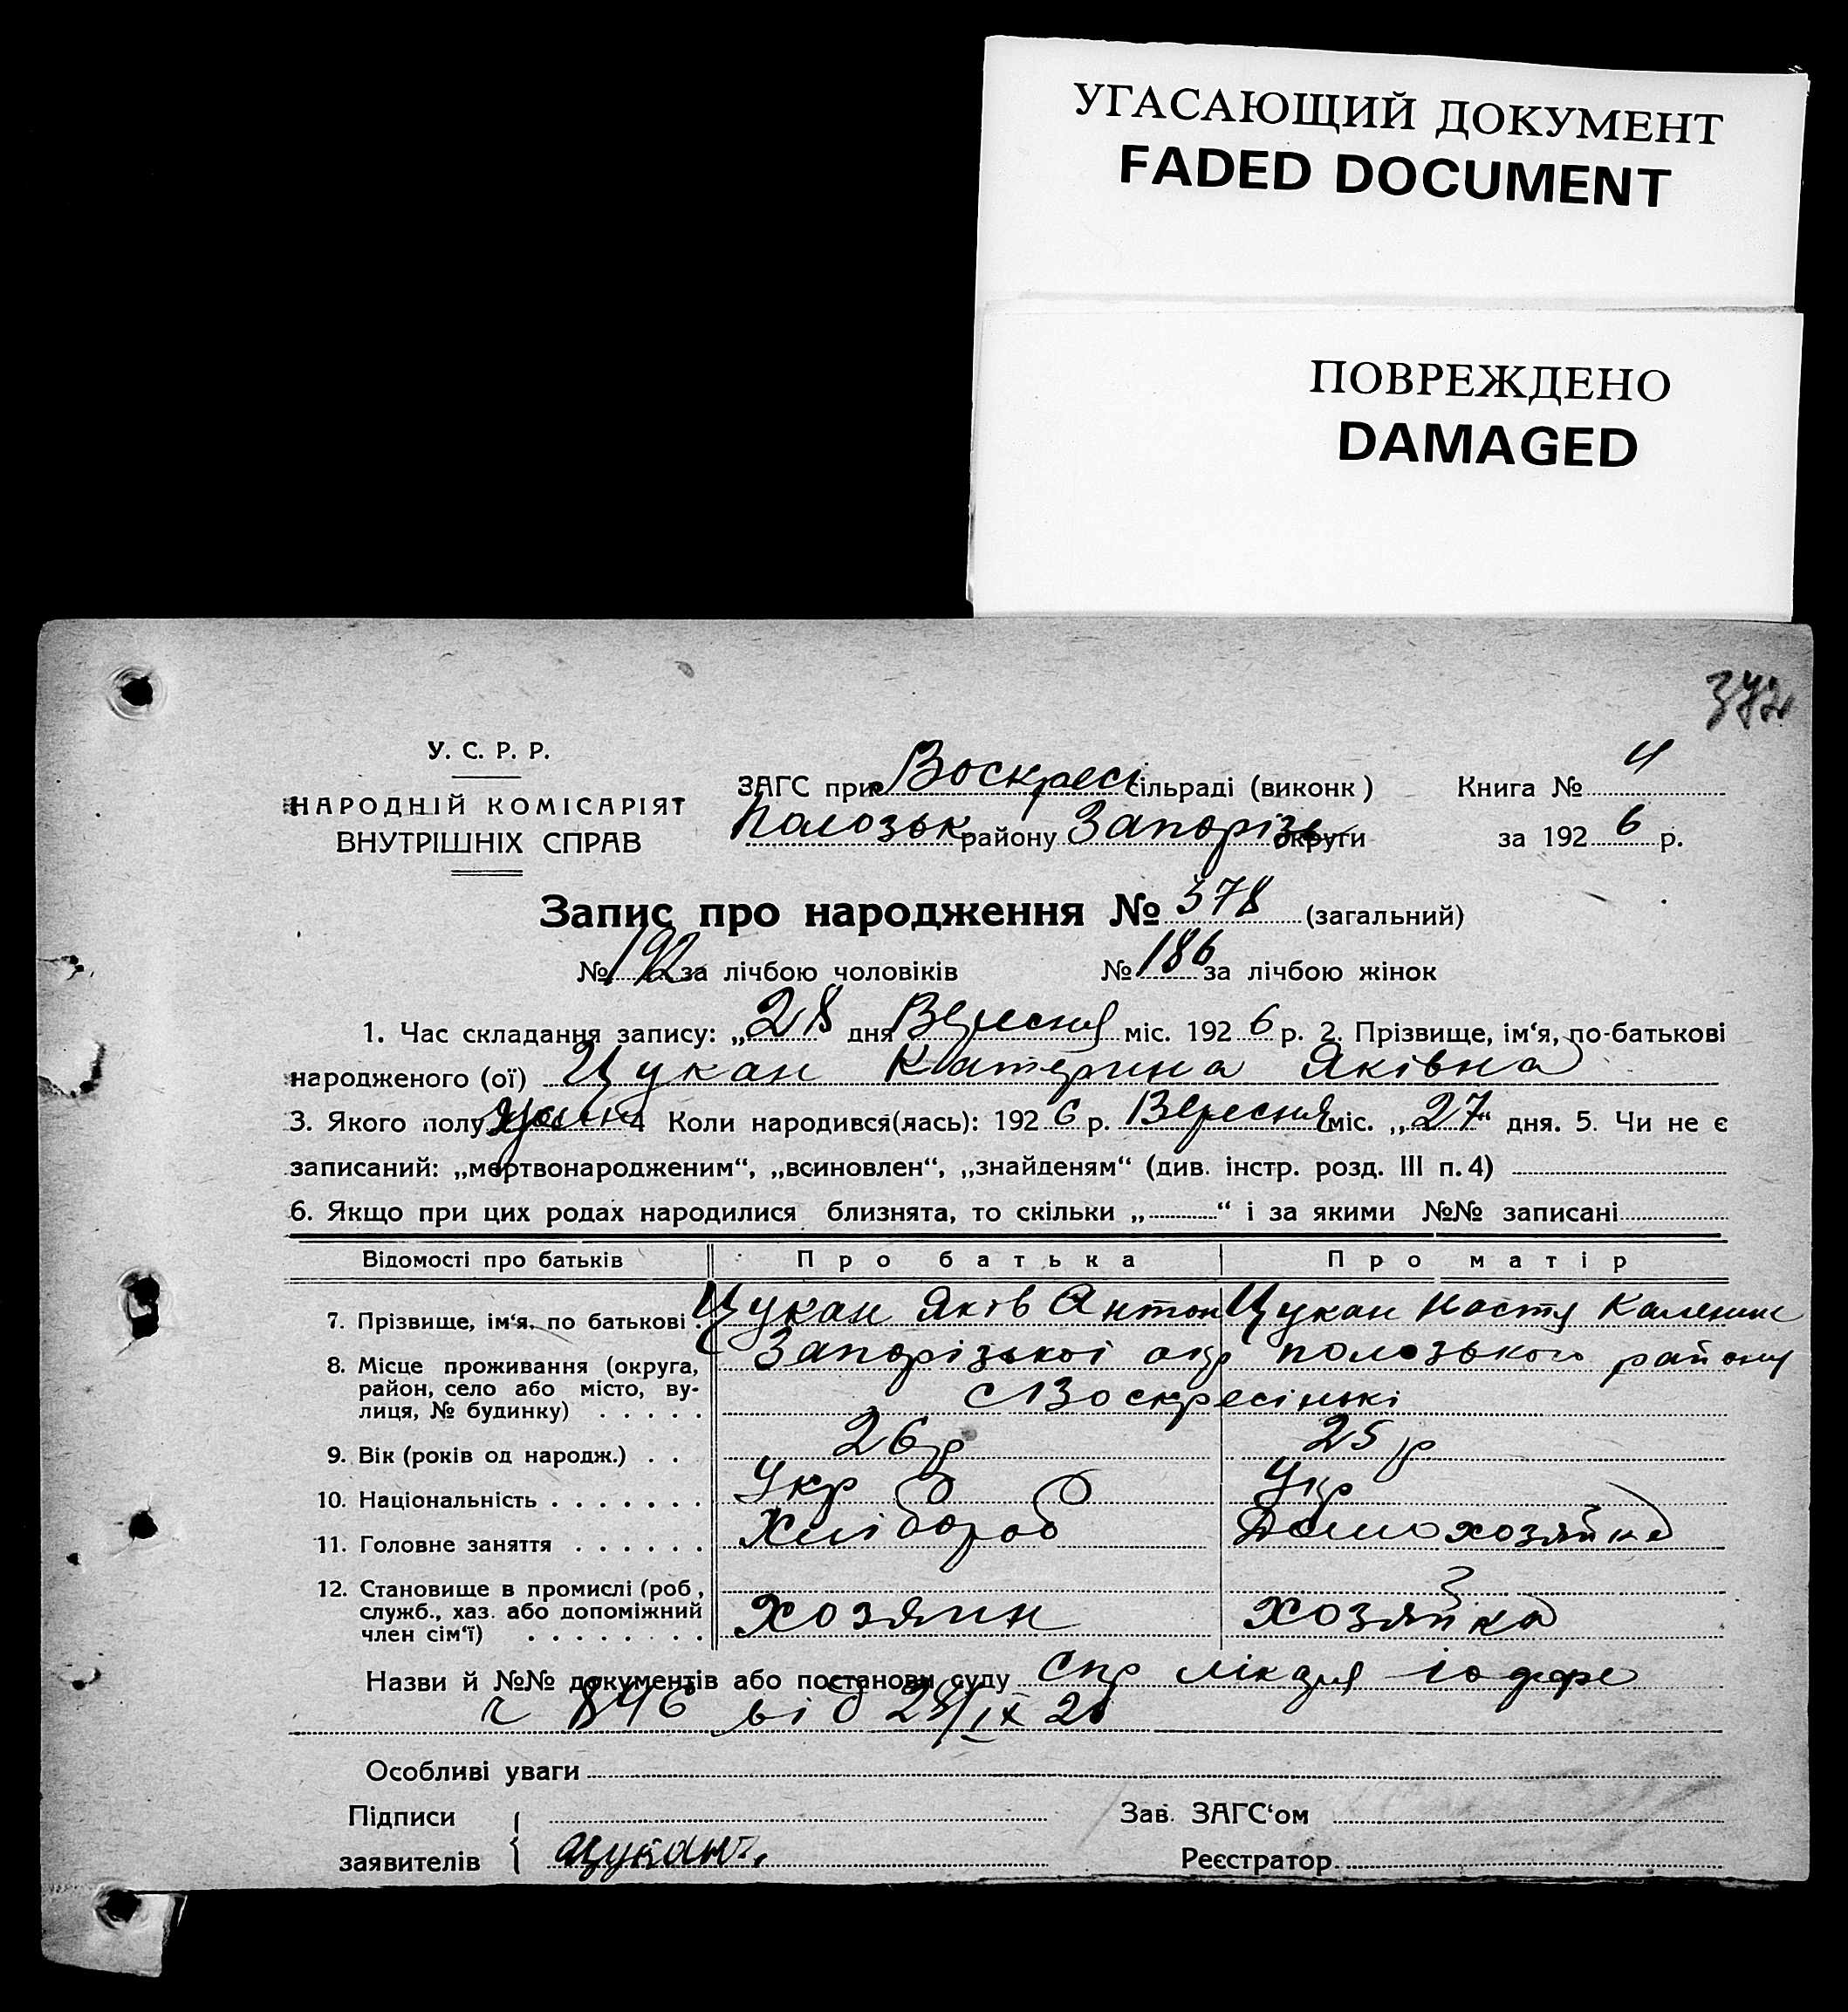 УГАСАЮЩИЙ ДОКУМЕНТ
FADED DOCUMENT
ПОВРЕЖДЕНО
DAMAGED
372
У. С. Р. Р.
НАРОДНІЙ КОМІСАРІЯТ
ВНУТРІШНІХ СПРАВ
ЗАГС при Воскресі сільраді (виконк) Книга № 4
Полозьк району Запорізь округи за 192 6 р.
Запис про народження № 378 (загальний)
№ 192 за лічбою чоловіків № 186 за лічбою жінок
1. Час складання запису: „ 28 дня Вересня міс. 192 6 р. 2. Прізвище, ім‘я, по-батькові
народженого (ої) Цукан Катерина Яківна
3. Якого полу жін 4 Коли народився(лась): 192 6 р. Вересня міс. „ 27 “ дня. 5. Чи не є
записаний: „мертвонародженим“, „всиновлен“, „знайденям“ (див. інстр. розд. III п. 4)
6. Якщо при цих родах народилися близнята, то скільки „ “ і за якими №№ записані
Відомості про батьків Про батька Про матір
7. Прізвище, ім‘я, по батькові . Цукан Яків Антон Цукан Настя Калении
8. Місце проживання (округа, Запорізької окр полозького району
район, село або місто, ву- с Воскресінькі
лиця, № будинку) . . . . .
9. Вік (років од народж.) . . 26 р 25 р
10. Національність . . . . . . . Укр Укр
11. Головне заняття . . . . . . Хлібороб Домохозяйка
12. Становище в промислі (роб.,
служб., хаз. або допоміжний хозяин хозяйка
член сім‘ї) . . . . . . . .
Назви й №№ документів або постанови суду Спр лікаря Іоффе
ч 846 від 28/IX 26
Особливі уваги
Підписи Зав. ЗАГС‘ом
заявителів Цукан Реєстратор